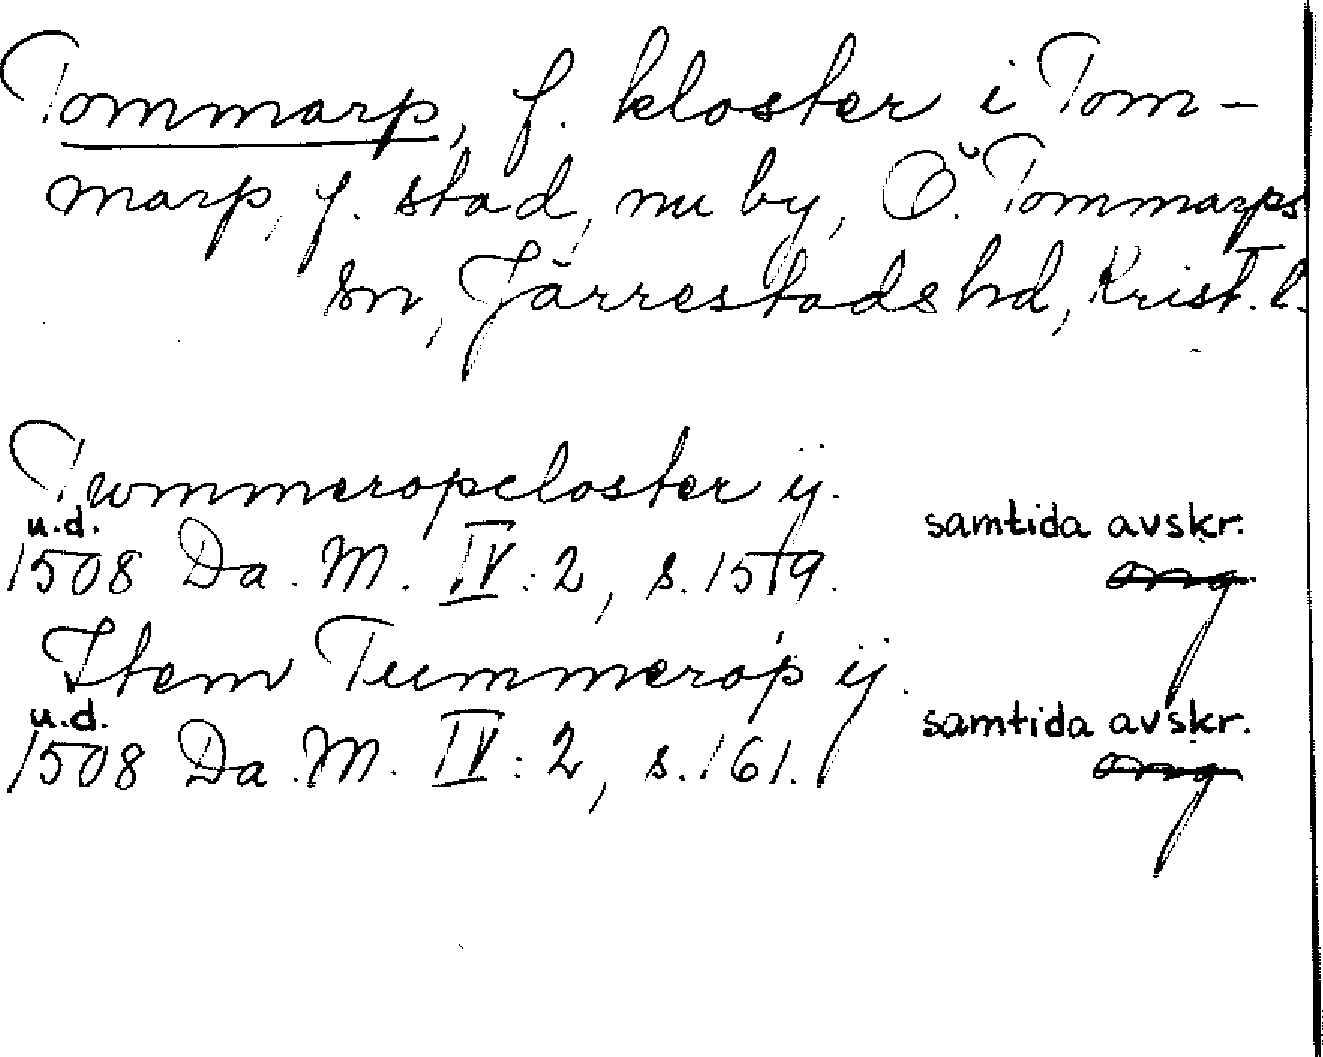 Tommarp, f. kloster i Tom-
marp, f. stad, nu by, Ö. Tommarps
sn, Järrestads hd, Krist. l.
Twmmeropcloster ij.
u.d. samtida avskr.
1508 Da. M. IV: 2, s. 159. org
Item Tummerop ij.
u.d. samtida avskr.
1508 Da. M. IV: 2, s. 161. org